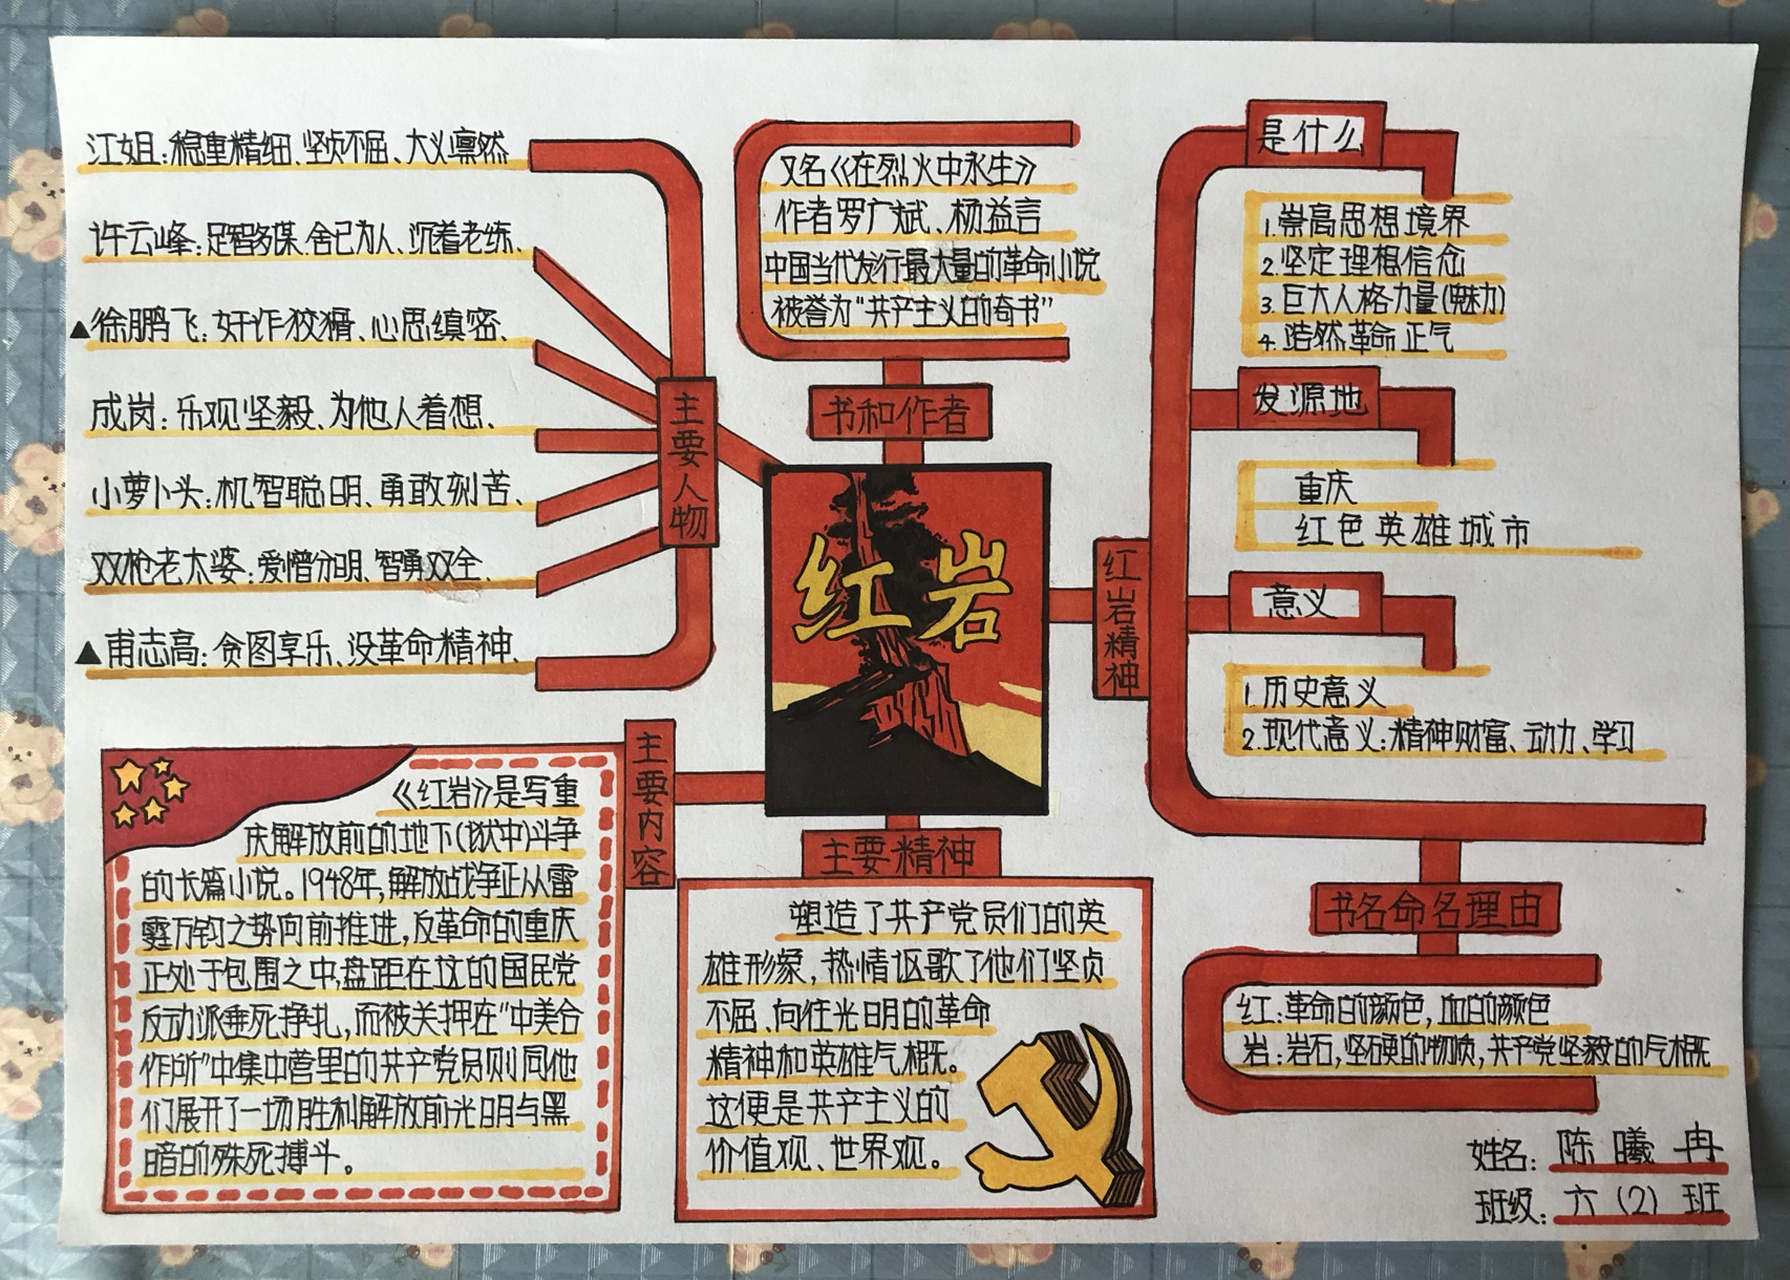 江姐:稳重精细、坚贞不屈、大义凛然
许云峰:足智多谋.舍己为人、沉着老练、
▲徐鹏飞:奸诈狡猾、心思缜密、
成岗:乐观坚毅、为他人着想、
小萝卜头:机智聪明、勇敢刻苦、
双枪老太婆:爱憎分明、智勇双全、
▲甫志高:贪图享乐、没革命精神、
主要人物
又名《在烈火中永生》
作者罗广斌、杨益言
中国当代发行最大量的革命小说
被誉为“共产主义的奇书”
书和作者
红岩
红岩精神
是什么
1.崇高思想境界
2.坚定理想信念
3.巨大人格力量(魅力)
4.浩然革命正气
发源地
重庆
红色英雄城市
意义
1.历史意义
2.现代意义:精神财富、动力、学习
主要内容
《红岩》是写重
庆解放前的地下(狱中)斗争
的长篇小说。1948年,解放战争正从雷
霆万钧之势向前推进,反革命的重庆
正处于包围之中,盘距在这的国民党
反动派垂死挣扎,而被关押在“中美合
作所”中集中营里的共产党员则同他
们展开了一场胜利解放前光明与黑
暗的殊死搏斗。
主要精神
塑造了共产党员们的英
雄形象,热情讴歌了他们坚贞
不屈、向往光明的革命
精神和英雄气概。
这便是共产主义的
价值观、世界观。
书名命名理由
红:革命的颜色,血的颜色
岩:岩石,坚硬的物质,共产党坚毅的气概
姓名:陈曦冉
班级:六(2)班